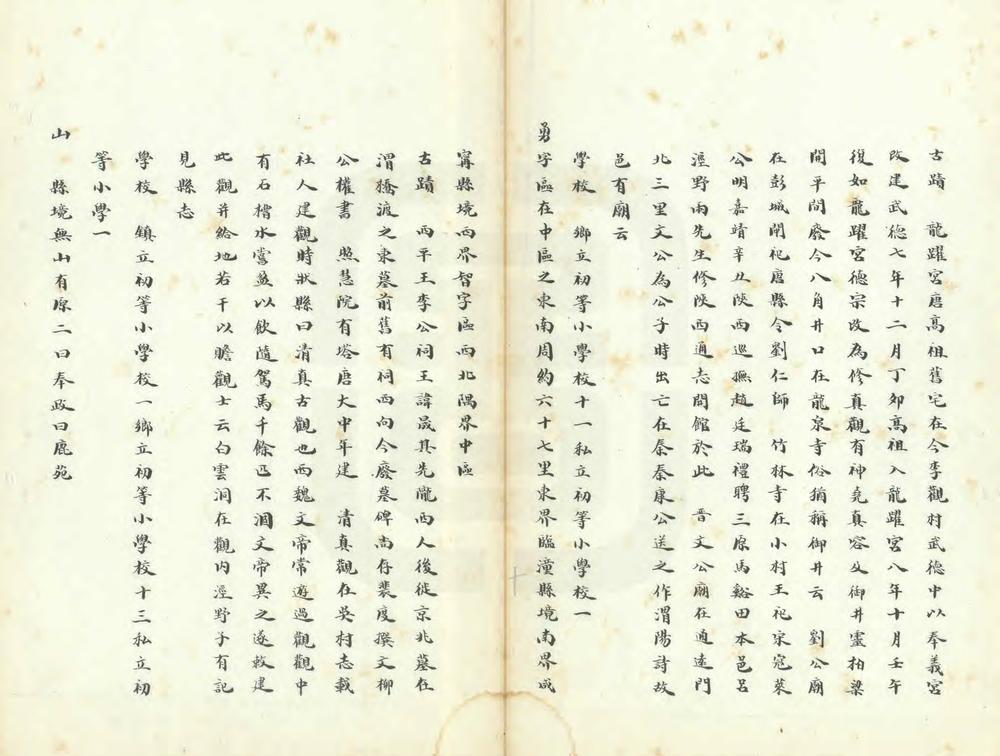 古蹟　龍躍宮唐高祖舊宅在今李觀村武德中以奉義宮
改建武德七年十二月丁卯高祖入龍躍宮八年十月壬午
復如龍躍宮德宗改為修真觀有神堯真容及御井靈柏梁
開平間廢今八角井口在龍泉寺俗猶稱御井云　劉公廟
在彭城閈祀唐縣令劉仁師　竹林寺在小村王祀宋寇萊
公明嘉靖辛丑陝西巡撫趙廷瑞禮聘三原馬谿田本邑呂
涇野兩先生修陝西通志開館於此　晉文公廟在通遠門
北三里文公為公子時出亡在秦秦康公送之作渭陽詩故
邑有廟云
學校　鄉立初等小學校十一私立初等小學校一
勇字區在中區之東南周約六十七里東界臨潼縣境南界咸
寗縣境西界智字區西北隅界中區
古蹟　西平王李公祠王諱晟其先隴西人後徙京兆墓在
渭橋渡之東墓前舊有祠西向今廢墓碑尚存裴度撰文柳
公權書　照慧院有塔唐大中年建　清真觀在吳村志載
社人建觀時狀縣曰清真古觀也西魏文帝常遊過觀觀中
有石槽水嘗盈以飲隨駕馬千餘匹不涸文帝異之遂敕建
此觀并給地若干以瞻觀士云白雲洞在觀內涇野子有記
見縣志
學校　鎮立初等小學校一鄉立初等小學校十三私立初
等小學一
山　縣境無山有原二曰奉政曰鹿苑